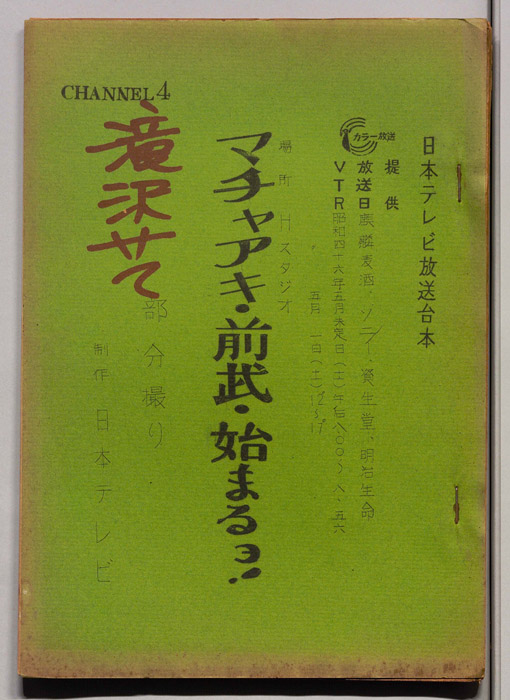 日本テレビ放送台本
カラー放送
提供 麒麟麦酒、ソニー、資生堂、明治生命
放送日 昭和四十六年五月未定日(土)午后八:〇〇〜八:五六
VTR 五月一日(土)12〜17
場所 Hスタジオ
マチャアキ・前武・始まるョ!
部分撮り
制作 日本テレビ
CHANNEL4
滝沢せて